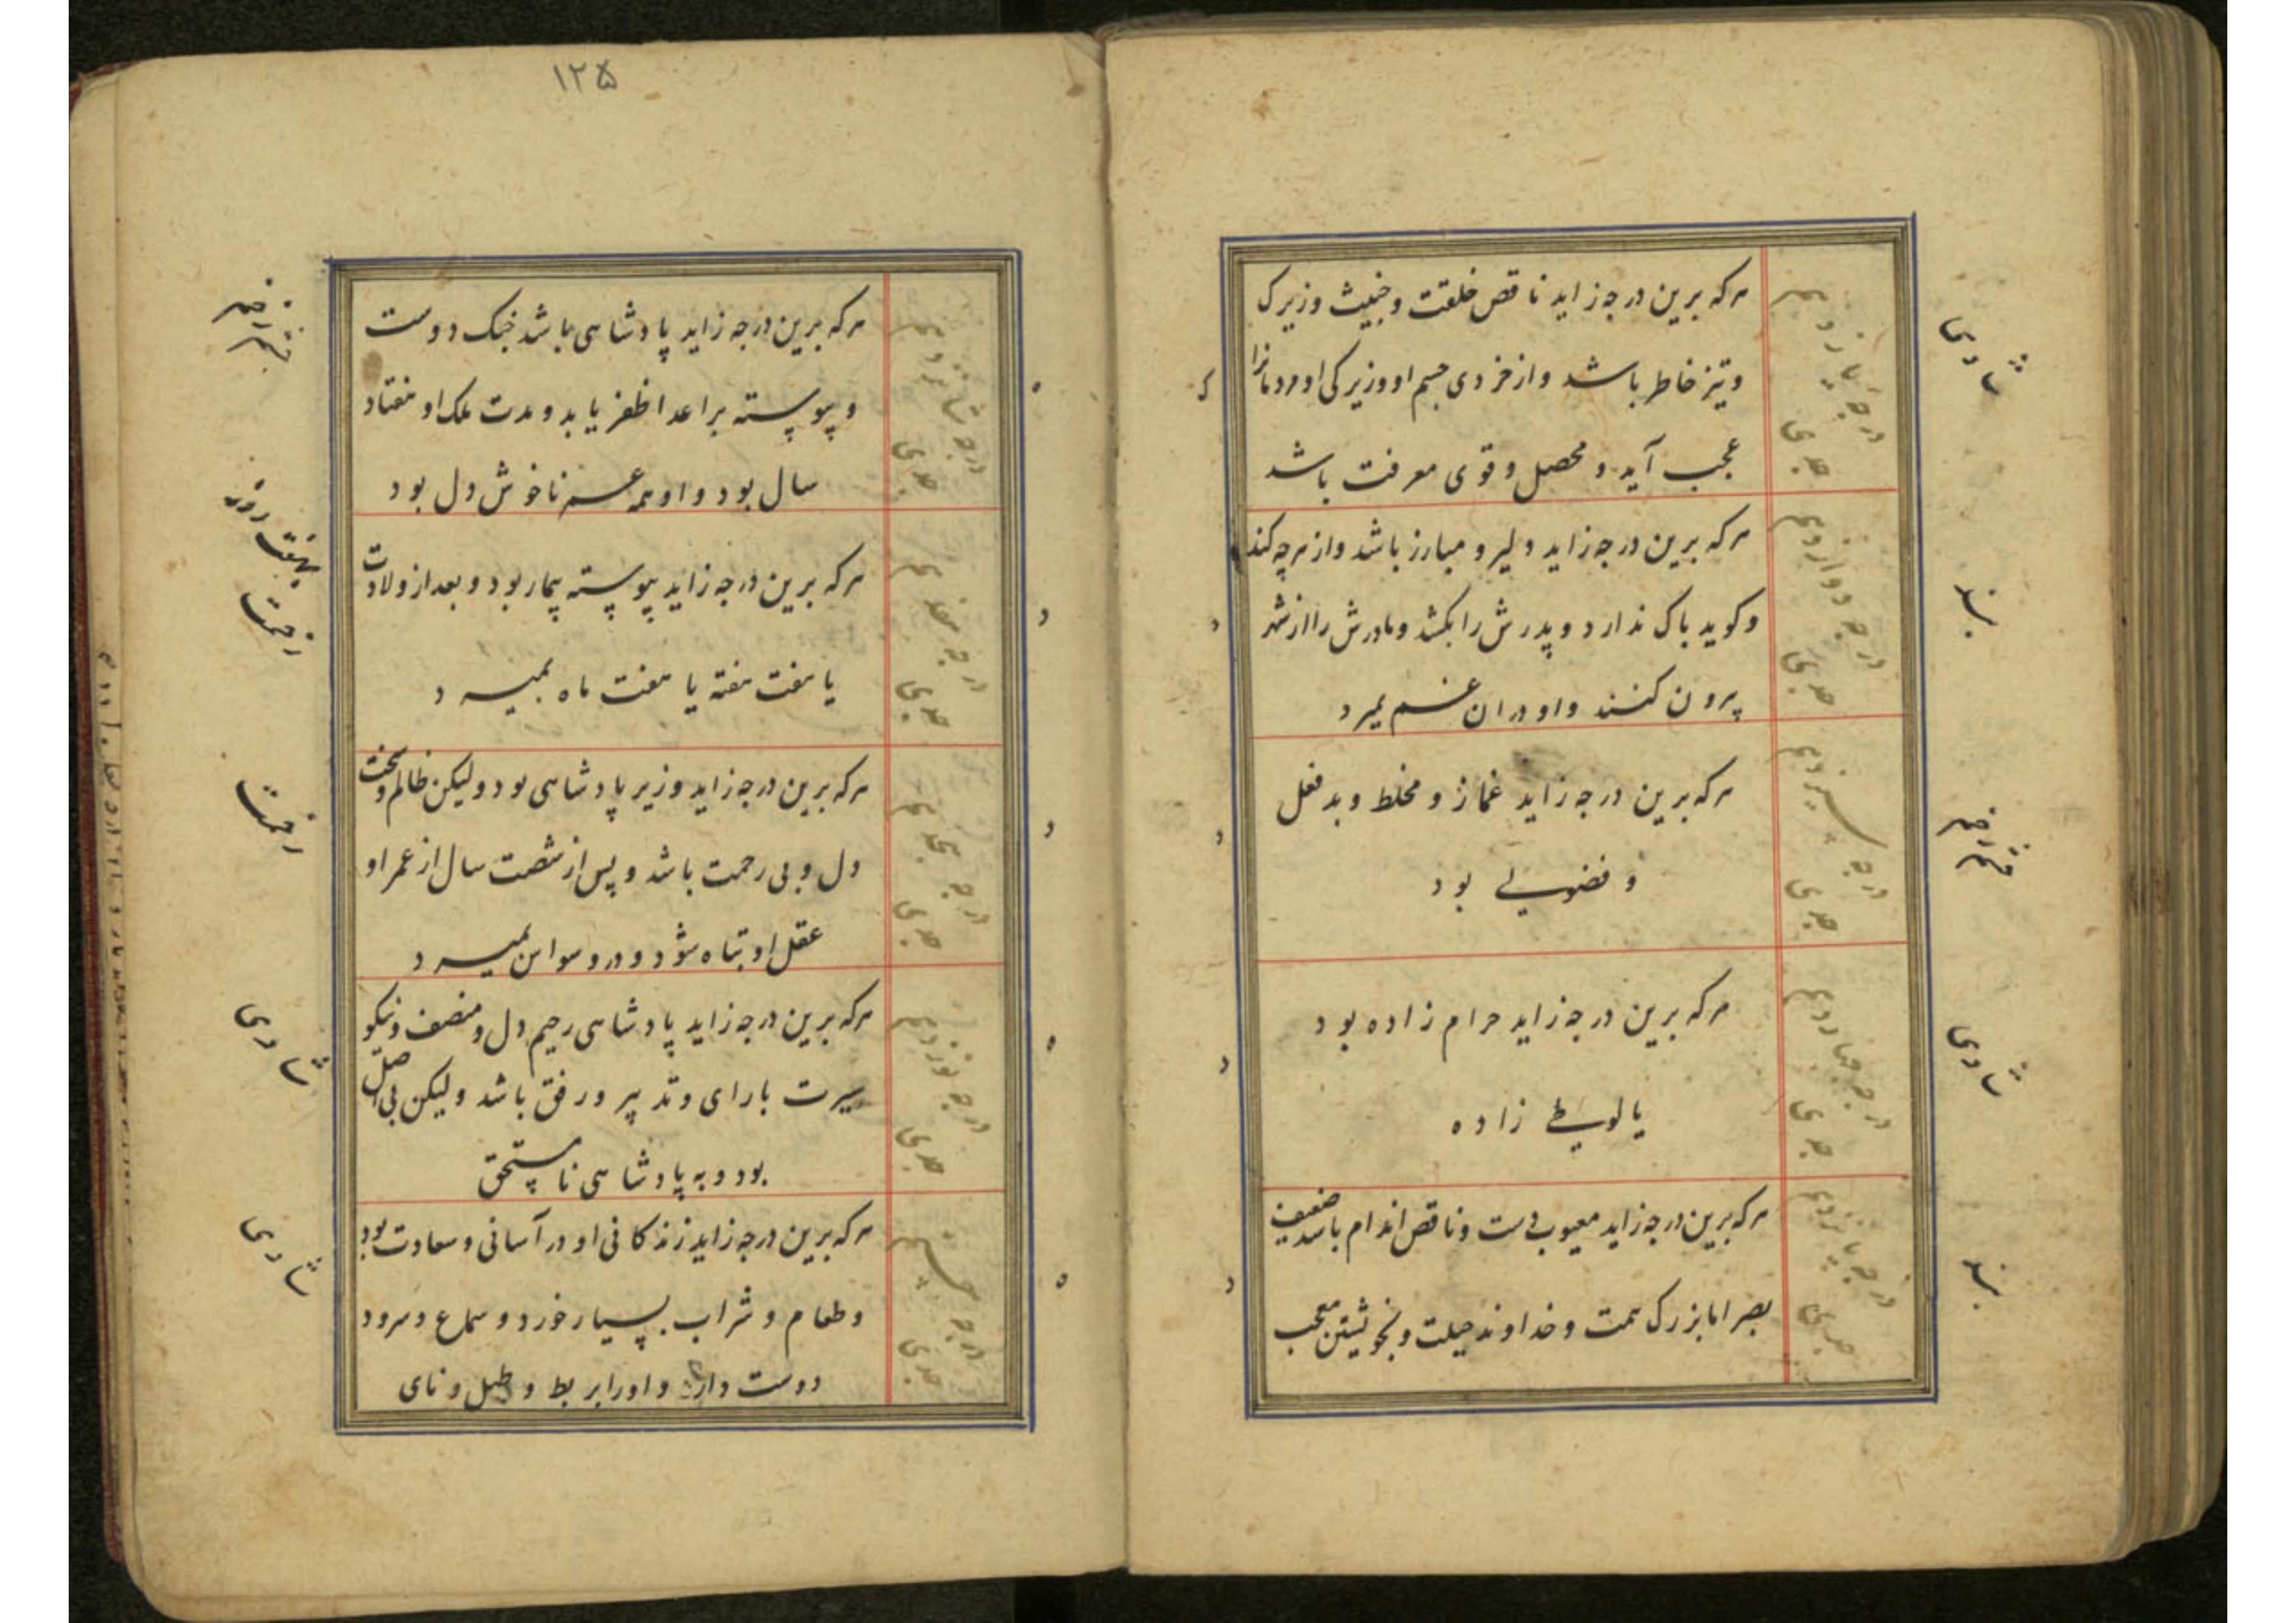 درجه یازدهم
جدی
هرکه برین درجه زاید ناقص خلقت و خبیث و زیرک
و تیز خاطر باشد و از خردی جسم او و زیرکی او مردمانرا
عجب آید و محصل و قوی معرفت باشد
شادی
درجه دوازدهم
جدی
هرکه برین درجه زاید دلیر و مبارز باشد و از هرچه کند
و کوید باک ندارد و پدرش را بکشد و مادرش را از شهر
بیرون کنند و او دران غم بمیرد
درجه سیزدهم
جدی
هرکه برین درجه زاید غماز و مخلط و بد فعل
و فضولی بود
درجه چهاردهم
جدی
هرکه برین درجه زاید حرام زاده بود
یا لوطی زاده
شادی
درجه پانزدهم
جدی
هرکه برین درجه زاید معیوب دست و ناقص اندام باشد ضعیف
بصر اما بزرک همت و خداوند حیلت و بخویشتن معجب
۱۲۵
درجه شانزدهم
جدی
هرکه برین درجه زاید پادشاهی باشد جنک دوست
و پیوسته بر اعدا ظفر یابد و مدت ملک او هفتاد
سال بود و او همه عمر ناخوش دل بود
درجه هفدهم
جدی
هرکه برین درجه زاید پیوسته بیمار بود و بعد از ولادت
یا هفت هفته یا هفت ماه بمیرد
درجه هجدهم
جدی
هرکه برین درجه زاید وزیر پادشاهی بود ولیکن ظالم و سخت
دل و بی رحمت باشد و پس از شصت سال از عمر او
عقل او تباه شود و در وسواس بمیرد
درجه نوزدهم
جدی
هرکه برین درجه زاید پادشاهی رحیم دل و منصف و نیکو
سیرت با رای و تدبیر و رفق باشد ولیکن بی اصل
بود و به پادشاهی نامستحق
شادی
درجه بیستم
جدی
هرکه برین درجه زاید زندکانی او در آسانی و سعادت بود
و طعام و شراب بسیار خورد و سماع و سرود
دوست دارد و او را بربط و طبل و نای
شادی